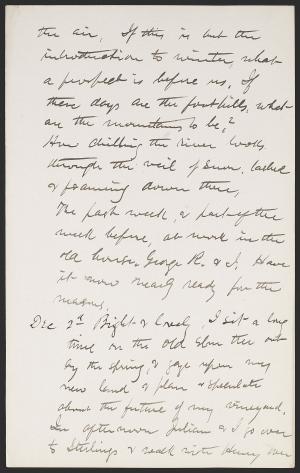 the air. If this is but the
introduction to winter, what
a prospect is before us. If
these days are the foothills, what
are the mountains to be?
How chilling the river looks
through the veil of snow, lashed
& foaming down there,
The past week, & part of the
week before, at work in the
old house, George R. & I. Have
it now nearly ready for the
masons.
Dec 2d Bright & lovely, I sit a long
time on the old stone hut out
by the spring, & gaze upon my
new land & plan & speculate
about the future of my vineyard.
In afternoon Julian & I go over
to Sterlings & walk with Henry over